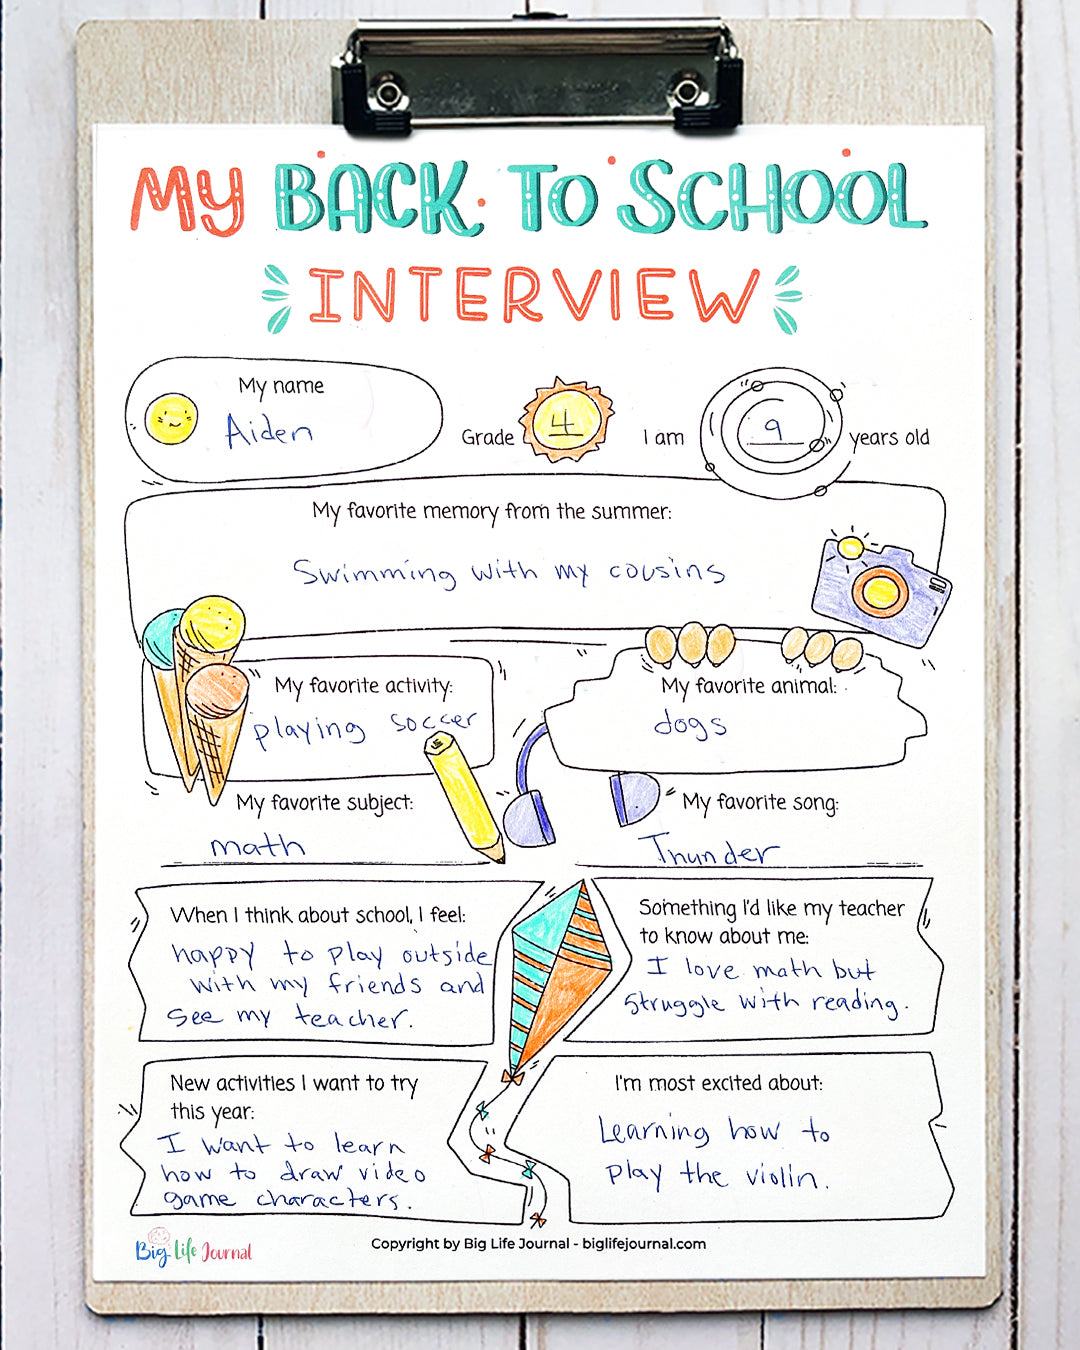 MY BACK TO SCHOOL
INTERVIEW
My name
Aiden
Grade 4
I am 9 years old
My favorite memory from the summer:
Swimming with my cousins
My favorite activity:
playing soccer
My favorite animal:
dogs
My favorite subject:
math
My favorite song:
Thunder
When I think about school, I feel:
happy to play outside
with my friends and
see my teacher.
Something I'd like my teacher
to know about me:
I love math but
struggle with reading.
New activities I want to try
this year:
I want to learn
how to draw video
game characters.
I'm most excited about:
Learning how to
play the violin.
Big Life Journal
Copyright by Big Life Journal - biglifejournal.com